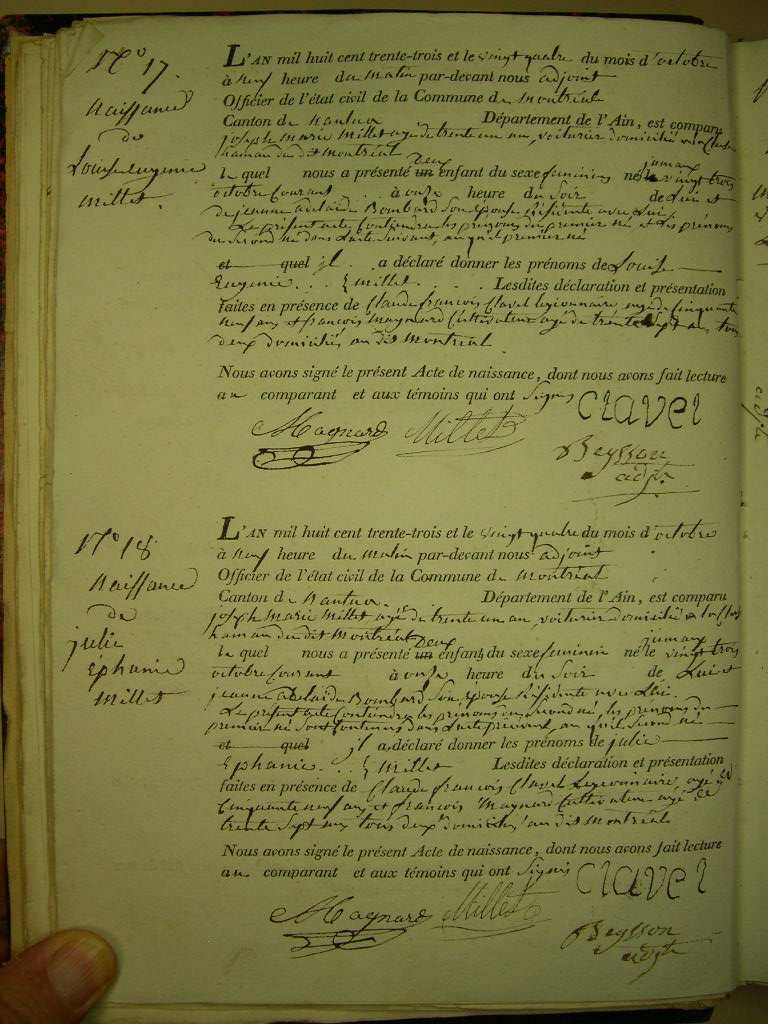 N.o 17.
Naissance
de
Louise eugenie
Millet.
L'AN mil huit cent trente-trois et le vingt quatre du mois d'octobre
à neuf heure du matin par-devant nous adjoint
Officier de l'état civil de la Commune de montréal
Canton de nantua Département de l'Ain, est comparu
joseph Marie Millet agé de trente un an, voiturier domicilié
hameau du dit montréal
le quel nous a présenté un deux enfant du sexe feminin jumaux né le vingt trois
octobre courant à onze heure du soir de Lui et
de jeanne adelaide Bombard son epouse résidente avec Lui.
Le présent acte contiendra les prenoms du premier né et les prénoms
du second né dans l'acte suivant,
et quel il a déclaré donner les prénoms de Louise
Eugenie . . . & millet . . . Lesdites déclaration et présentation
faites en présence de Claude françois Clavel legionnaire, agé de Cinquante
neuf ans et francois Maynard Cultivateur agé de trente sept ans tous
deux domiciliés au dit montréal.
Nous avons signé le présent Acte de naissance, dont nous avons fait lecture
au comparant et aux témoins qui ont signés
Clavel
Magnard Millet
Beysson
adjt.
N.o 18
Naissance
de
julie
Ephanie
Millet
L'AN mil huit cent trente-trois et le vingt quatre du mois d'octobre
à neuf heure du matin par-devant nous adjoint
Officier de l'état civil de la Commune de montréal
Canton de nantua. Département de l'Ain, est comparu
joseph Marie Millet agé de trente un an, voiturier domicilié
hameau du dit montréal
le quel nous a présenté un deux enfant du sexe feminin jumaux né le vingt trois
octobre courant à onze heure du soir de Lui et
jeanne adelaide Bombard son epouse résidente avec Lui.
Le présent acte contiendra les prenoms du second né, les prenoms du
premier né sont contenus dans l'acte précédent,
et quel il a déclaré donner les prénoms de julie
Ephanie . . & Millet Lesdites déclaration et présentation
faites en présence de Claude françois Clavel Legionnaire agé de
Cinquante neuf ans et francois Maynard Cultivateur agé de
trente sept ans tous deux domiciliés au dit montréal
Nous avons signé le présent Acte de naissance, dont nous avons fait lecture
au comparant et aux témoins qui ont signés
Clavel
Magnard Millet
Beysson
adjt